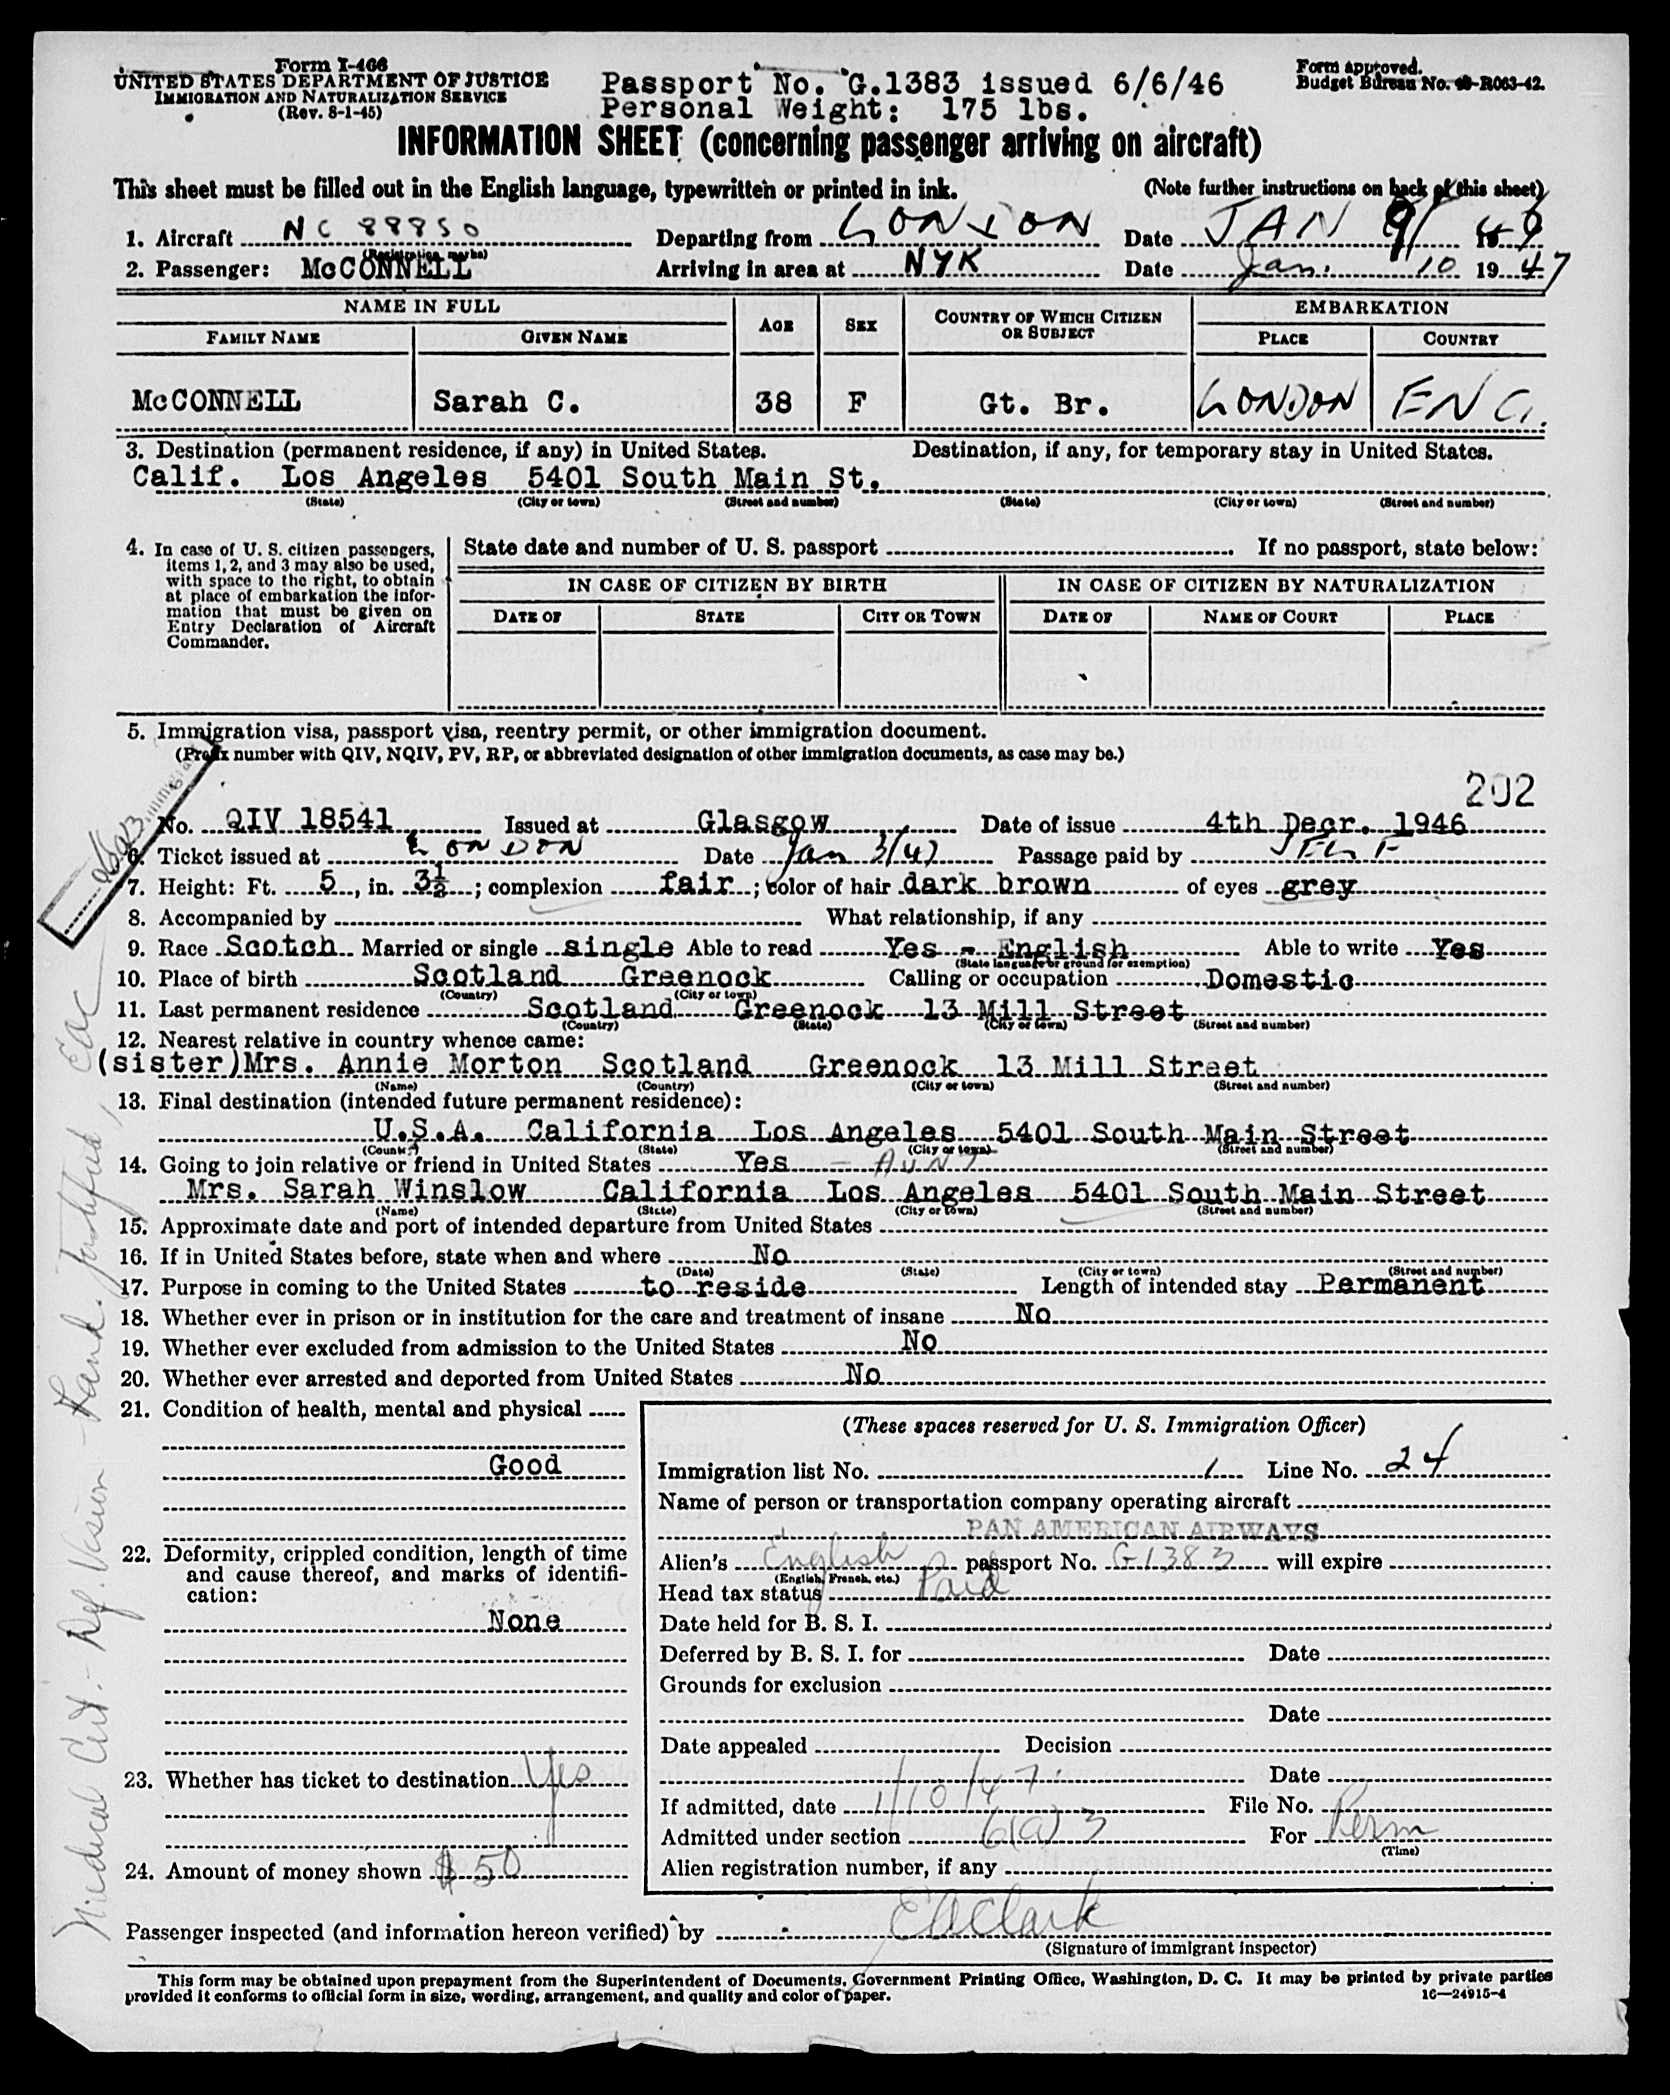 Form I-466
UNITED STATES DEPARTMENT OF JUSTICE
IMMIGRATION AND NATURALIZATION SERVICE
(Rev. 8-1-45)
Passport No. G.1383 issued 6/6/46
Personal Weight: 175 lbs.
Form approved.
Budget Bureau No. 43-R063-42.
INFORMATION SHEET (concerning passenger arriving on aircraft)
This sheet must be filled out in the English language, typewritten or printed in ink. (Note further instructions on back of this sheet)
1. Aircraft NC 88850 Departing from LONDON Date JAN 9/ 19
(Registration marks)
2. Passenger: McCONNELL Arriving in area at NYK Date Jan. 10 1947
NAME IN FULL AGE SEX COUNTRY OF WHICH CITIZEN OR SUBJECT EMBARKATION
FAMILY NAME GIVEN NAME PLACE COUNTRY
McCONNELL Sarah C. 38 F Gt. Br. LONDON ENG.
3. Destination (permanent residence, if any) in United States. Destination, if any, for temporary stay in United States.
Calif. Los Angeles 5401 South Main St.
(State) (City or town) (Street and number) (State) (City or town) (Street and number)
4. In case of U. S. citizen passengers, items 1, 2, and 3 may also be used, with space to the right, to obtain at place of embarkation the information that must be given on Entry Declaration of Aircraft Commander.
State date and number of U. S. passport If no passport, state below:
IN CASE OF CITIZEN BY BIRTH IN CASE OF CITIZEN BY NATURALIZATION
DATE OF STATE CITY OR TOWN DATE OF NAME OF COURT PLACE
5. Immigration visa, passport visa, reentry permit, or other immigration document.
(Prefix number with QIV, NQIV, PV, RP, or abbreviated designation of other immigration documents, as case may be.)
202
No. QIV 18541 Issued at Glasgow Date of issue 4th Decr. 1946
6. Ticket issued at LONDON Date Jan 3/47 Passage paid by SELF
7. Height: Ft. 5, in. 3½; complexion fair; color of hair dark brown of eyes grey
8. Accompanied by What relationship, if any
9. Race Scotch Married or single single Able to read Yes - English Able to write Yes
(State language or ground for exemption)
10. Place of birth Scotland Greenock Calling or occupation Domestic
(Country) (City or town)
11. Last permanent residence Scotland Greenock 13 Mill Street
(Country) (State) (City or town) (Street and number)
12. Nearest relative in country whence came:
(sister)Mrs. Annie Morton Scotland Greenock 13 Mill Street
(Name) (Country) (City or town) (Street and number)
13. Final destination (intended future permanent residence):
U.S.A. California Los Angeles 5401 South Main Street
(Country) (State) (City or town) (Street and number)
14. Going to join relative or friend in United States Yes - AUNT
Mrs. Sarah Winslow California Los Angeles 5401 South Main Street
(Name) (State) (City or town) (Street and number)
15. Approximate date and port of intended departure from United States
16. If in United States before, state when and where No
(Date) (State) (City or town) (Street and number)
17. Purpose in coming to the United States to reside Length of intended stay Permanent
18. Whether ever in prison or in institution for the care and treatment of insane No
19. Whether ever excluded from admission to the United States No
20. Whether ever arrested and deported from United States No
21. Condition of health, mental and physical
Good
22. Deformity, crippled condition, length of time and cause thereof, and marks of identification:
None
23. Whether has ticket to destination Yes
24. Amount of money shown $50
(These spaces reserved for U. S. Immigration Officer)
Immigration list No. 1 Line No. 24
Name of person or transportation company operating aircraft
PAN AMERICAN AIRWAYS
Alien's English passport No. G1383 will expire
(English, French, etc.)
Head tax status Paid
Date held for B. S. I.
Deferred by B. S. I. for Date
Grounds for exclusion
Date
Date appealed Decision
Date
If admitted, date 1/10/47 File No.
Admitted under section 6(a)3 For Perm
(Time)
Alien registration number, if any
Passenger inspected (and information hereon verified) by E A Clark
(Signature of immigrant inspector)
This form may be obtained upon prepayment from the Superintendent of Documents, Government Printing Office, Washington, D. C. It may be printed by private parties
provided it conforms to official form in size, wording, arrangement, and quality and color of paper.
16—24915-4
Medical Cert. - Def. Vision - Hand